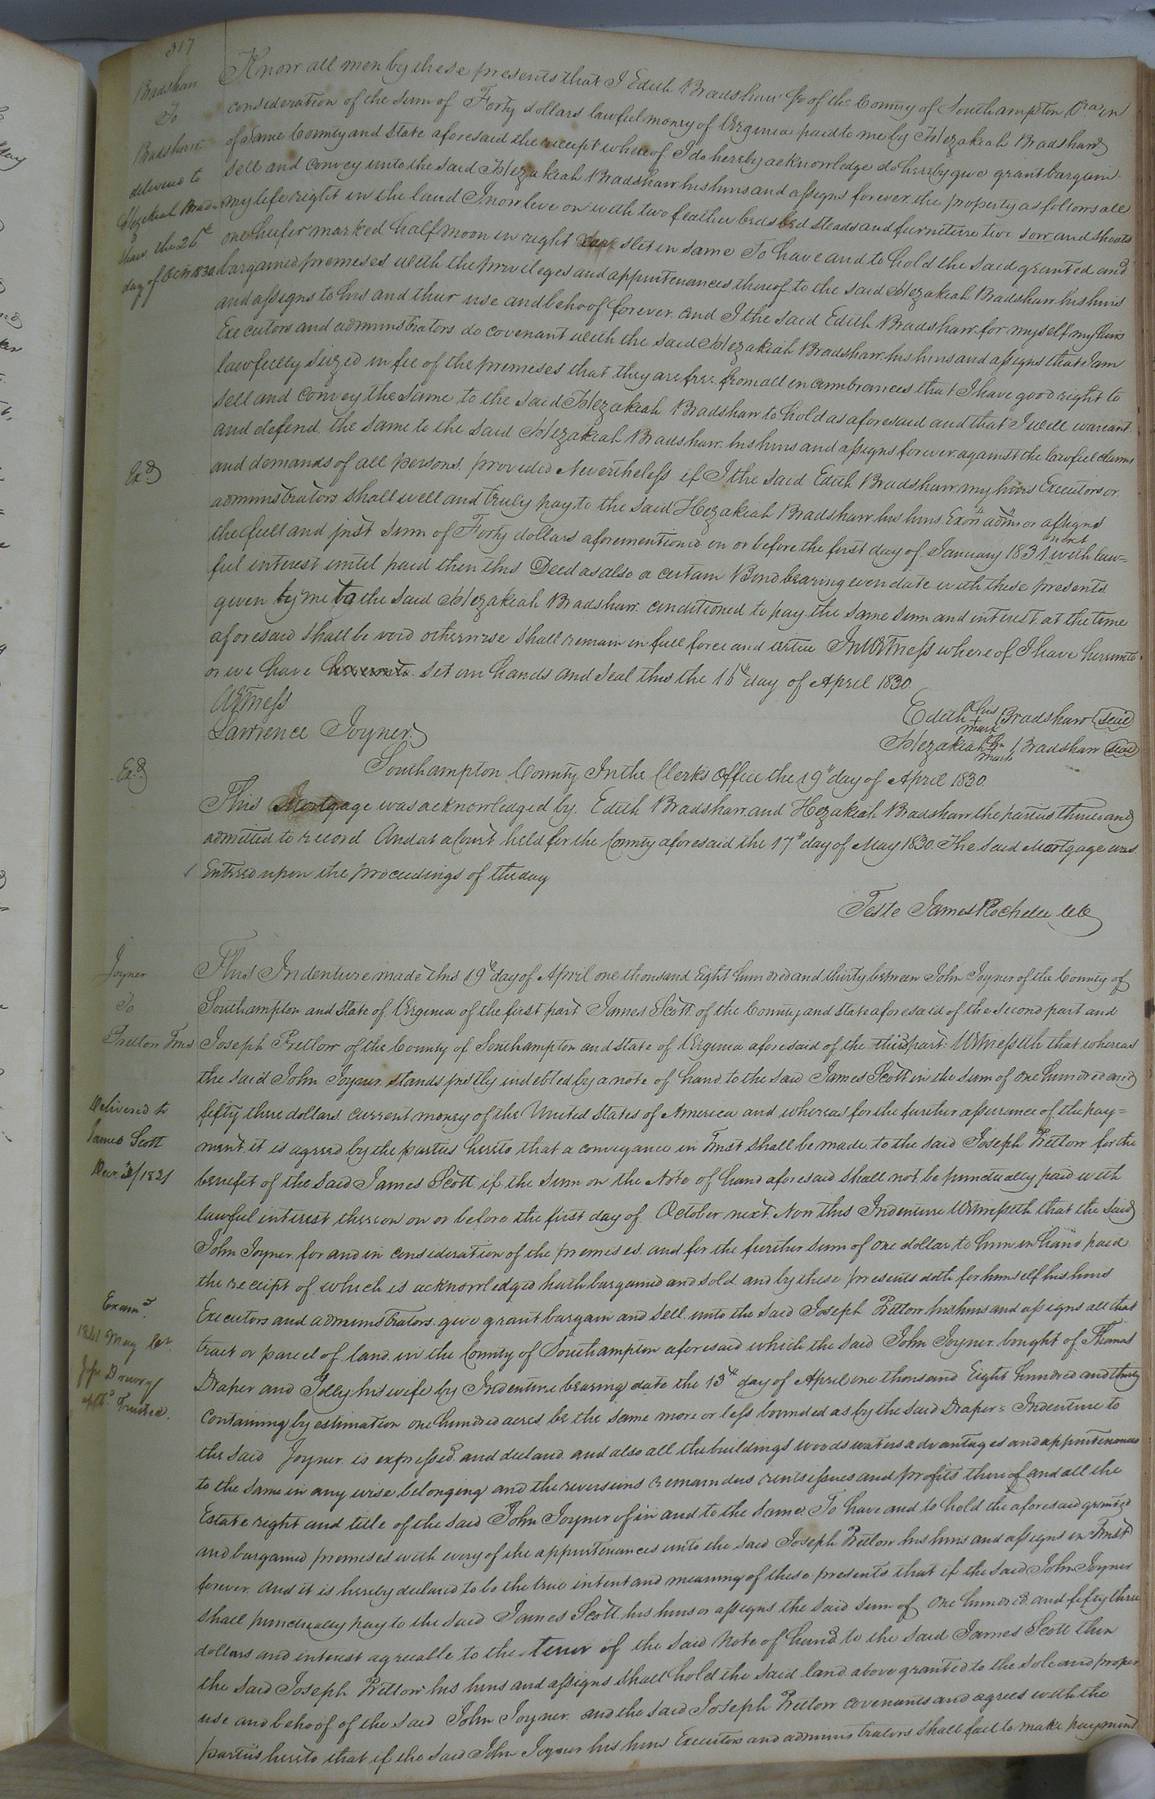 317
Bradshaw
To
Bradshaw
delivered to
Hezekiah Brad-
shaw the 26th
day of Feb 1830
Know all men by these presents that I Edith Bradshaw Sr of the County of Southampton Va in
consideration of the sum of Forty dollars lawful money of Virginia paid to me by Hezakiah Bradshaw
of same County and State aforesaid the receipt whereof I do hereby acknowledge do hereby give grant bargain
sell and convey unto the said Hezakiah Bradshaw his heirs and assigns forever the property as follows all
my life right in the land I now live on with two feather beds bed steads and furneture two sow and shoats
one heifer marked half moon in right slit in same To have and to hold the said granted and
bargained premeses with the privileges and appurtenances thereof to the said Hezakiah Bradshaw his heirs
and assigns to his and their use and behoof forever and I the said Edith Bradshaw for myself my heirs
Executors and administrators do covenant with the said Hezakiah Bradshaw his heirs and assigns that I am
lawfully seized in fee of the premeses that they are free from all encumbrances that I have good right to
sell and convey the same to the said Hezakiah Bradshaw to hold as aforesaid and that I will warrant
and defend the same to the said Hezakiah Bradshaw his heirs and assigns forever against the lawful claims
Exd
and demands of all persons. provided Nevertheless if I the said Edith Bradshaw my heirs Executors or
administrators shall well and truly pay to the said Hezakiah Bradshaw his heirs Exors adms or assigns
the full and just sum of Forty dollars aforementioned on or before the first day of January 1831 with law=
ful interest until paid then this Deed as also a certain Bond bearing even date with these presents
given by me to the said Hezakiah Bradshaw conditioned to pay the same sum and interest at the time
aforesaid shall be void otherwise shall remain in full force and virtue In Witness whereof I have hereunto
or we have hereunto set our hands and seal this the 15th day of April 1830.
Witness
Lawrence Joyner
Edith his + mark Bradshaw (seal)
Hezakiah his + mark Bradshaw (seal)
Southampton County In the Clerk's Office the 19th day of April 1830.
Exd
This Mortgage was acknowledged by Edith Bradshaw and Hezakiah Bradshaw the parties thereto and
admitted to record And at a Court held for the County aforesaid the 17th day of May 1830. The said Mortgage was
Entered upon the proceedings of the day
Teste James Rochelle clk
Joyner
To
Pretlow Trus
Delivered to
James Scott
This Indenture made this 19th day of April one thousand Eight hundred and thirty between John Joyner of the County of
Southampton and State of Virginia of the first part James Scott of the County and state aforesaid of the second part and
Joseph Pretlow of the County of Southampton and State of Virginia aforesaid of the third part: Witnesseth that whereas
the said John Joyner stands justly indebted by a note of hand to the said James Scott in the sum of one hundred and
fifty three dollars current money of the United States of America and whereas for the further assurance of the pay=
ment, it is agreed by the parties hereto that a conveyance in Trust shall be made to the said Joseph Pretlow for the
benefit of the said James Scott if the sum on the Note of hand aforesaid shall not be punctually paid with
lawful interest thereon on or before the first day of October next. Now this Indenture Witnesseth that the said
John Joyner for and in consideration of the premeses and for the further sum of one dollar to him in hand paid
the receipt of which is acknowledged hath bargained and sold and by these presents doth for himself his heirs
Examd
1841 May 1st
Drewry
Trustee.
Executors and administrators give grant bargain and sell unto the said Joseph Pretlow his heirs and assigns all that
tract or parcel of land in the County of Southampton aforesaid which the said John Joyner bought of Thomas
Draper and Polly his wife by Indenture bearing date the 13th day of April one thousand Eight hundred and thirty
containing by estimation one hundred acres be the same more or less bounded as by the said Draper's Indenture to
the said Joyner is expressed and declared and also all the buildings woods waters advantages and appurtenances
to the same in any wise belonging and the reversions remainders rents issues and profits thereof and all the
Estate right and title of the said John Joyner of in and to the same. To have and to hold the aforesaid granted
and bargained premeses with every of the appurtenances unto the said Joseph Pretlow his heirs and assigns in Trust
forever. And it is hereby declared to be the true intent and meaning of these presents that if the said John Joyner
shall punctually pay to the said James Scott his heirs or assigns the said sum of one hundred and fifty three
dollars and interest agreeable to the tenor of the said Note of hand to the said James Scott then
the said Joseph Pretlow his heirs and assigns shall hold the said land above granted to the sole and proper
use and behoof of the said John Joyner. and the said Joseph Pretlow covenants and agrees with the
parties hereto that if the said John Joyner his heirs Executors and administrators shall fail to make payment